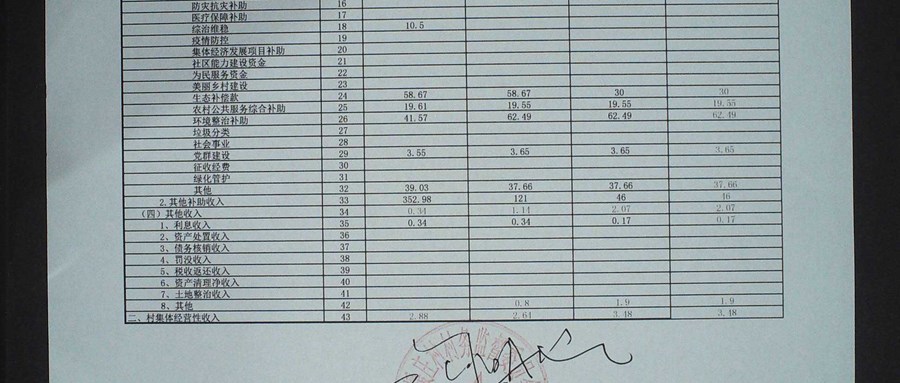 防灾抗灾补助 16
医疗保障补助 17
综治维稳 18 10.5
疫情防控 19
集体经济发展项目补助 20
社区能力建设资金 21
为民服务资金 22
美丽乡村建设 23
生态补偿款 24 58.67 58.67 30 30
农村公共服务综合补助 25 19.61 19.55 19.55 19.55
环境整治补助 26 41.57 62.49 62.49 62.49
垃圾分类 27
社会事业 28
党群建设 29 3.55 3.65 3.65 3.65
征收经费 30
绿化管护 31
其他 32 39.03 37.66 37.66 37.66
2.其他补助收入 33 352.98 121 46 46
（四）其他收入 34 0.34 1.14 2.07 2.07
1、利息收入 35 0.34 0.34 0.17 0.17
2、资产处置收入 36
3、债务核销收入 37
4、罚没收入 38
5、税收返还收入 39
6、资产清理净收入 40
7、土地整治收入 41
8、其他 42 0.8 1.9 1.9
二、村集体经营性收入 43 2.88 2.61 3.48 3.48